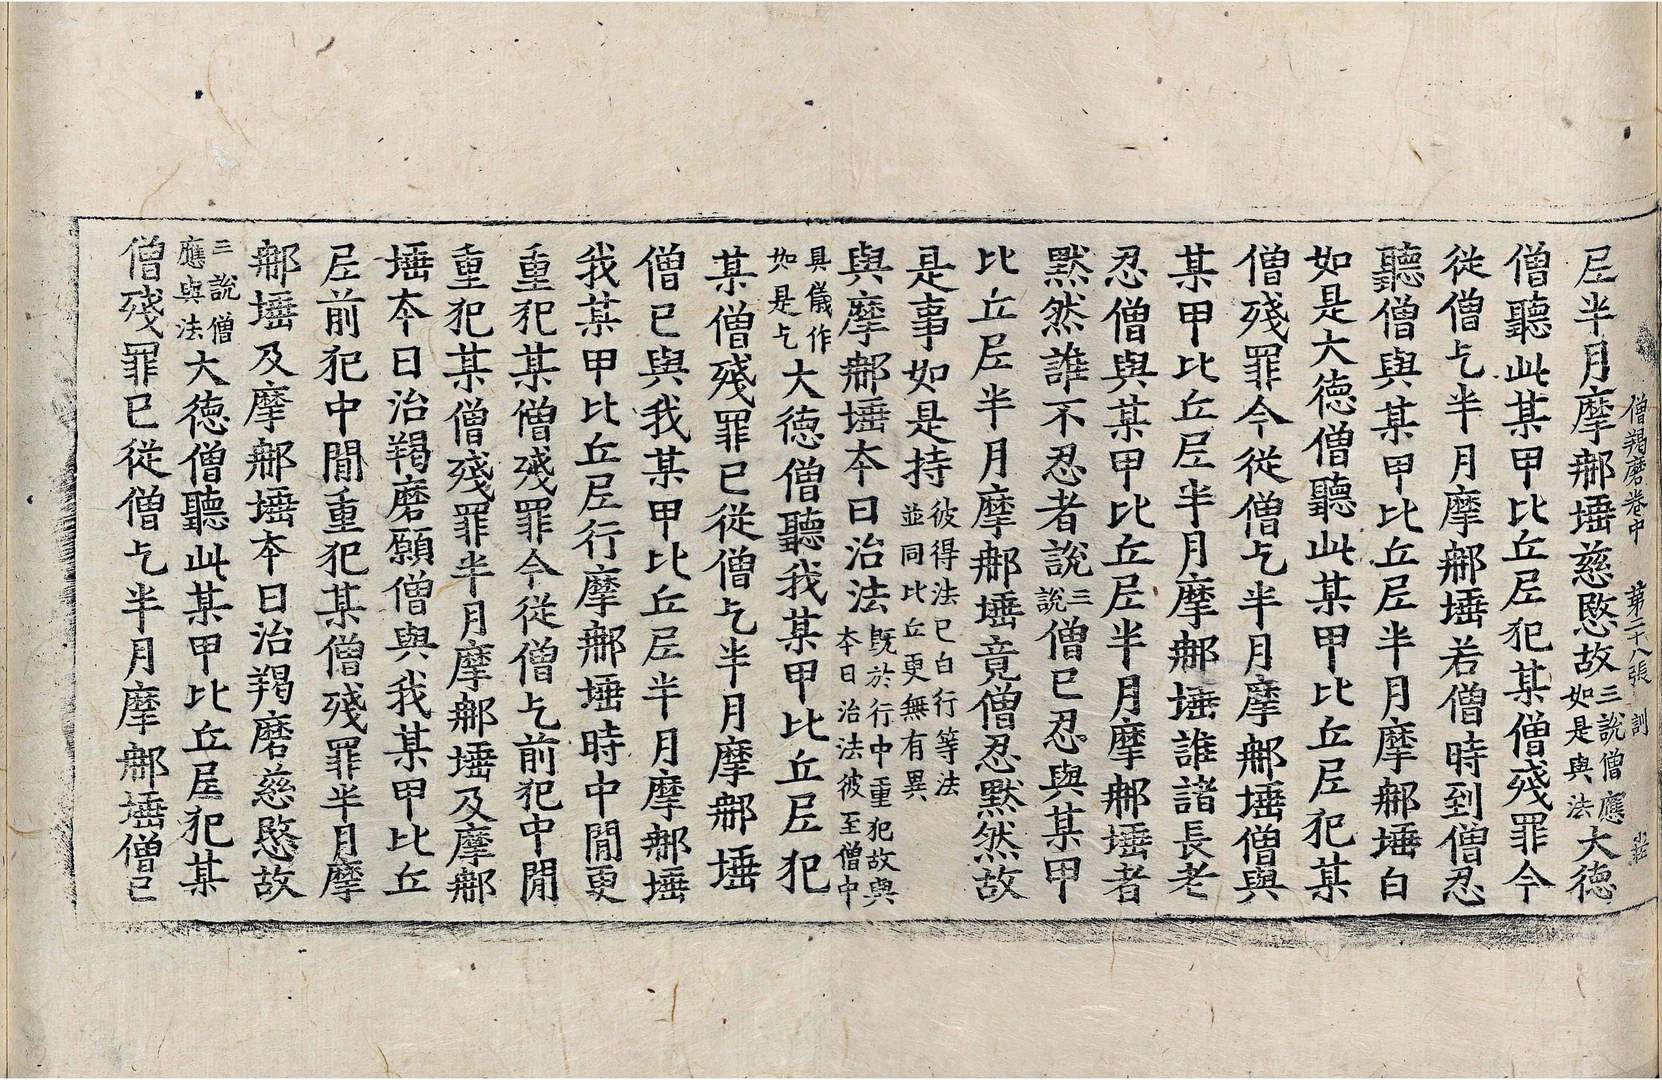 僧羯磨卷中 第二十八張 訓
尼半月摩郍埵慈愍故三說僧應如是與法大德
僧聽此某甲比丘尼犯某僧殘罪今
從僧乞半月摩郍埵若僧時到僧忍
聽僧與某甲比丘尼半月摩郍埵白
如是大德僧聽此某甲比丘尼犯某
僧殘罪今從僧乞半月摩郍埵僧與
某甲比丘尼半月摩郍埵誰諸長老
忍僧與某甲比丘尼半月摩郍埵者
默然誰不忍者說三說僧已忍與某甲
比丘尼半月摩郍埵竟僧忍默然故
是事如是持彼得法已白行等法並同比丘更無有異
與摩郍埵本日治法既於行中重犯故與本日治法彼至僧中
具儀作如是乞大德僧聽我某甲比丘尼犯
某僧殘罪已從僧乞半月摩郍埵
僧已與我某甲比丘尼半月摩郍埵
我某甲比丘尼行摩郍埵時中間更
重犯某僧殘罪今從僧乞前犯中間
重犯某僧殘罪半月摩郍埵及摩郍
埵本日治羯磨願僧與我某甲比丘
尼前犯中間重犯某僧殘罪半月摩
郍埵及摩郍埵本日治羯磨慈愍故
三說僧應與法大德僧聽此某甲比丘尼犯某
僧殘罪已從僧乞半月摩郍埵僧已